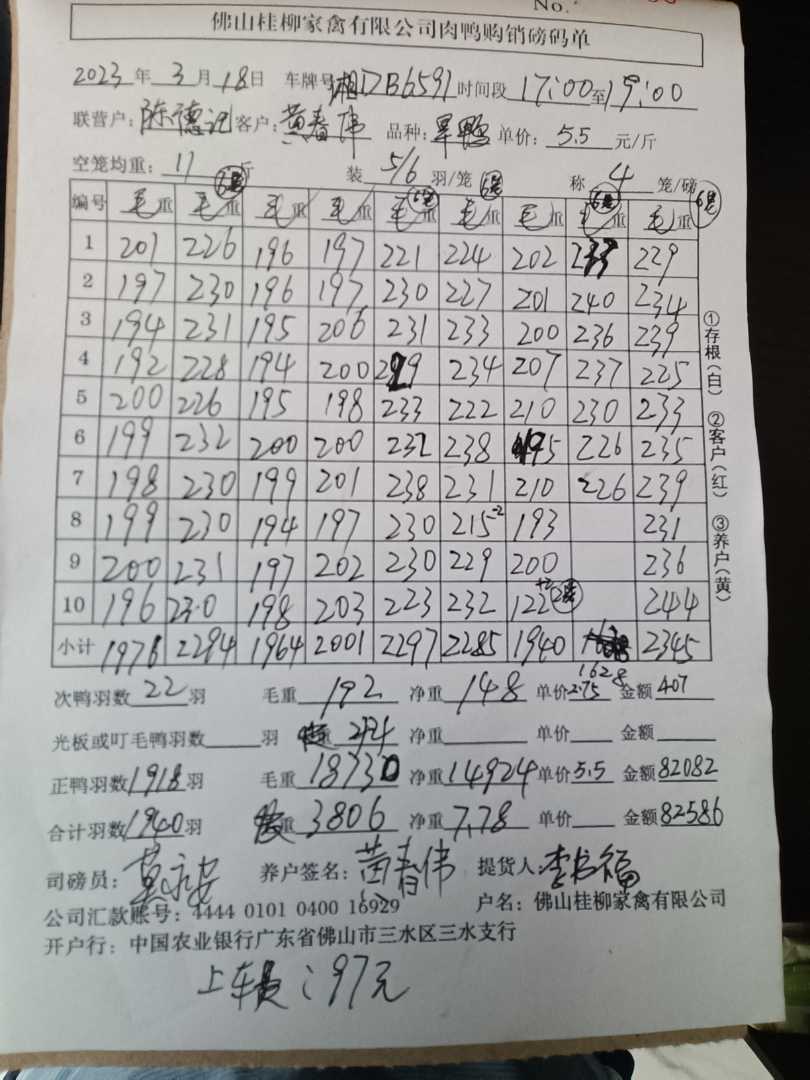 No.
佛山桂柳家禽有限公司肉鸭购销磅码单
2023年3月18日 车牌号 湘DB6591 时间段 17:00至19:00
联营户：陈德 客户：黄春伟 品种：旱鸭 单价：5.5元/斤
空笼均重：11斤 装5/6羽/笼 称4笼/磅
编号 毛重 毛重 毛重 毛重 毛重 毛重 毛重 毛重 毛重
1 201 226 196 197 221 224 202 233 229
2 197 230 196 197 230 227 201 240 234
3 194 231 195 206 231 233 200 236 239
4 192 228 194 200 229 234 207 237 225
5 200 226 195 198 233 222 210 230 233
6 199 232 200 200 232 238 195 226 235
7 198 230 199 201 238 231 210 226 239
8 199 230 194 197 230 215-2 193 231
9 200 231 197 202 230 229 200 236
10 196 230 198 203 223 232 122+2 244
小计 1976 2294 1964 2001 2297 2285 1940 1628 2345
次鸭羽数22羽 毛重192 净重148 单价2.75 金额407
光板或叮毛鸭羽数 羽 244 净重 单价 金额
正鸭羽数1918羽 毛重18730 净重14924 单价5.5 金额82082
合计羽数1940羽 重3806 净重7.78 单价 金额82586
司磅员：莫永安 养户签名：黄春伟 提货人：李长福
公司汇款账号：4444 0101 0400 16929 户名：佛山桂柳家禽有限公司
开户行：中国农业银行广东省佛山市三水区三水支行
上车费：97元
①存根（白） ②客户（红） ③养户（黄）